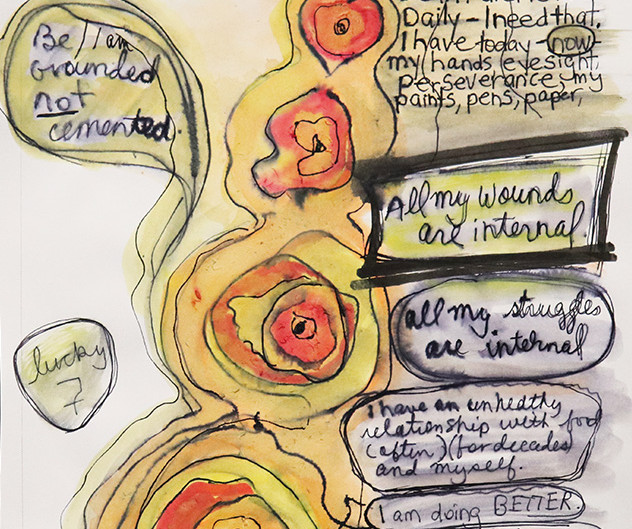 Be / I am
grounded
not
cemented.
Daily - I need that.
I have today - now -
my hands, eyesight,
perseverance, my
paints, pens, paper,
All my wounds
are internal.
all my struggles
are internal
lucky
7
I have an unhealthy
relationship with food
(often) (for decades)
and myself.
I am doing BETTER.